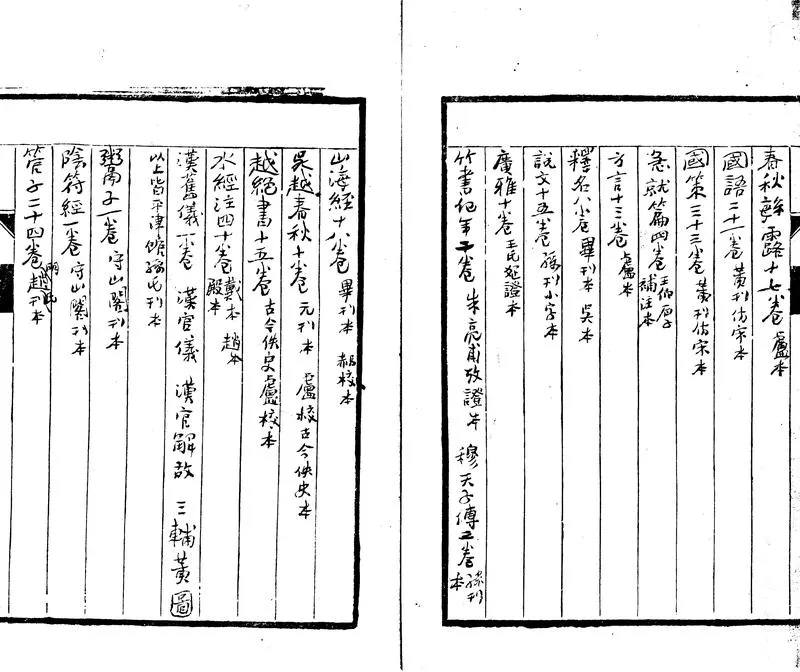 春秋繁露十七卷 盧本
國語二十一卷 黃刊仿宋本
國策三十三卷 黃刊仿宋本
急就篇四卷 王伯厚補注本
方言十三卷 盧本
釋名八卷 畢刊本 吳本
說文十五卷 孫刊小字本
廣雅十卷 王氏疏證本
竹書紀年二卷 朱亮甫攷證本 穆天子傳六卷 孫刊本
山海經十八卷 畢刊本 郝校本
吳越春秋十卷 元刊本 盧校古今佚史本
越絕書十五卷 古今佚史盧校本
水經注四十卷 戴本 趙本 殿本
漢舊儀一卷 漢官儀 漢官解故 三輔黃圖
以上皆平津館孫氏刊本
鬻子一卷 守山閣刊本
陰符經一卷 守山閣刊本
管子二十四卷 明趙氏刊本